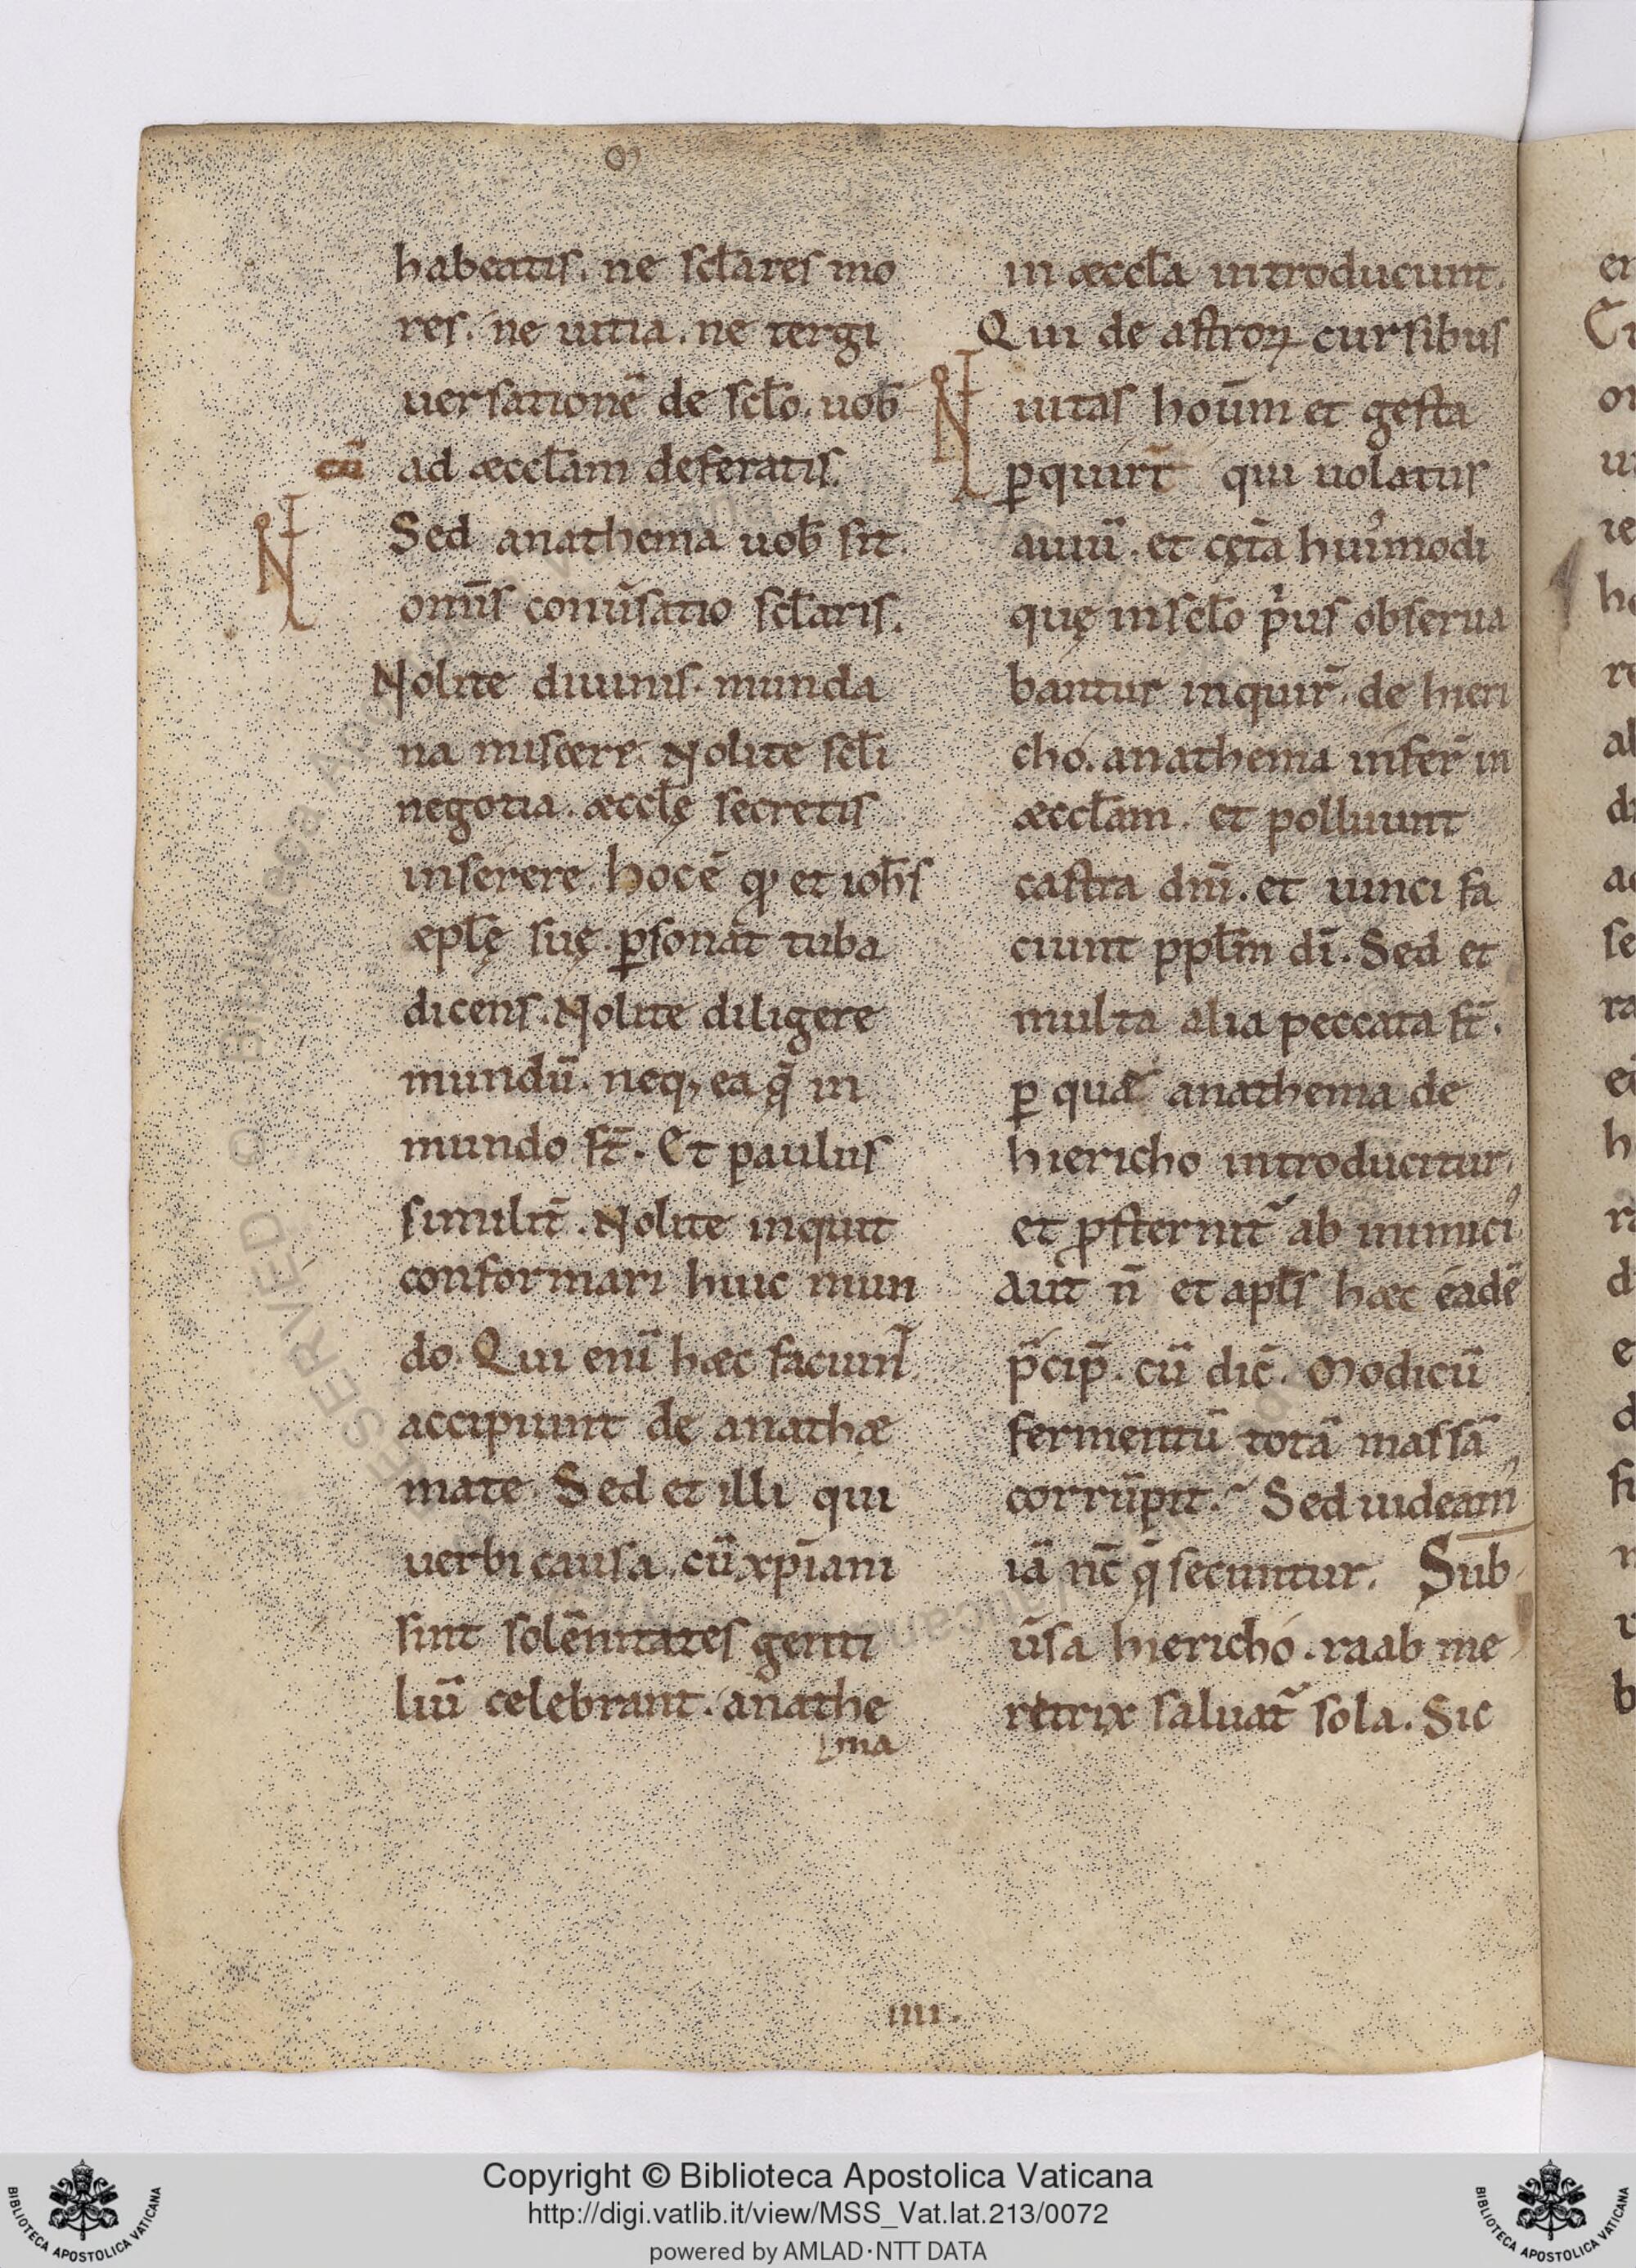 habeatis. ne scl̄ares mo
res. ne uitia. ne tergi
uersationē de scl̄o. uob̄
cū ad æccl̄am deferatis.
N
Sed anathema uob̄ sit
om̄is conuīsatio scl̄aris.
Nolite diuinis. munda
na miscere. Nolite scl̄i
negotia. æccl̄ę secretis
inserere. hoc ē qd̄ et ioh̄s
æpl̄ę suę. ꝑsonat tuba
dicens. Nolite diligere
mundū. neq; ea q̄ in
mundo st̄. Et paulus
similit̄. Nolite inquit
conformari huic mun
do. Qui enī hæc faciunt
accipiunt de anathæ
mate. Sed et illi qui
uerbi causa. cū xp̄iani
sint solēnitates genti
liū celebrant. anathe
ma
in æccl̄a introducunt.
Qui de astroꝝ cursibus
N
uitas hoūm et gesta
ꝑquirt̄ qui uolatus
auiū. et cęta huiꝰmodi
quę in scl̄o p̄us obserua
bantur inquir̄. de hieri
cho. anathema infer̄ in
æccl̄am. et polluunt
castra dnī. et uinci fa
ciunt ppl̄m dī. Sed et
multa alia peccata st̄.
ꝑ quæ anathema de
hiericho introducitur.
et ꝓsternit̄ ab inimiciꝰ
Aut n̄ et apl̄s hæc eadē
p̄cip̄. cū dic̄. Modicū
fermentū totā massā
corrūpit. Sed uideamꝰ
iā nc̄ q̄ secuntur. Sub
ūsa hiericho. raab me
retrix saluat̄ sola. Sic
IIII.
Copyright © Biblioteca Apostolica Vaticana
http://digi.vatlib.it/view/MSS_Vat.lat.213/0072
powered by AMLAD·NTT DATA
BIBLIOTECA APOSTOLICA VATICANA
BIBLIOTECA APOSTOLICA VATICANA